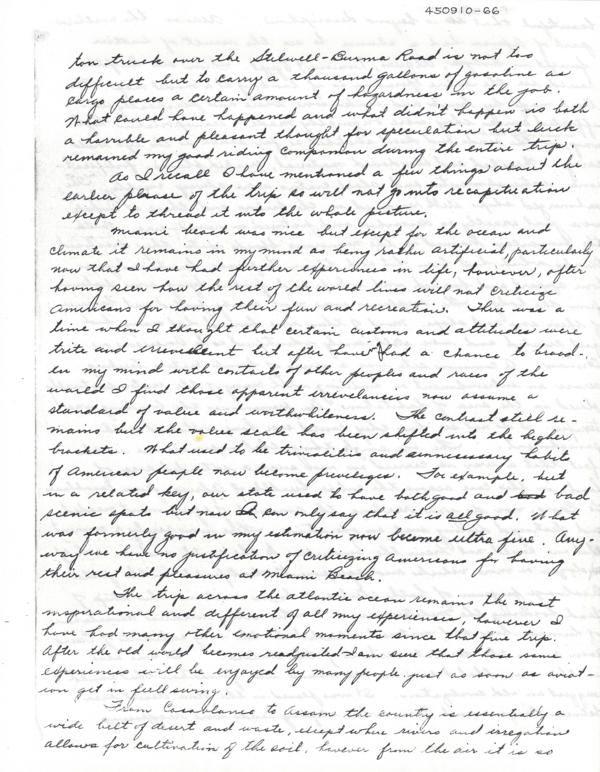 450910-66
ton truck over the Stilwell-Burma Road is not too
difficult but to carry a thousand gallons of gasoline as
cargo places a certain amount of hazardness in the job.
What could have happened and what didn't happen is both
a horrible and pleasant thought for speculation but luck
remained my good riding companion during the entire trip.
As I recall I have mentioned a few things about the
earlier phrase of the trip so will not go into recapituation
except to thread it into the whole picture.
Miami beach was nice but except for the ocean and
climate it remains in my mind as being rather artificial, particularly
now that I have had further experiences in life, however, after
having seen how the rest of the world lives will not criticize
Americans for having their fun and recreation. There was a
time when I thought that certain customs and attitudes were
trite and but after have had a chance to broad-
en my mind with contacts of other peoples and races of the
world I find those apparent irrevelancies now assume a
standard of value and worthwhileness. The contrast still re-
mains but the value scale has been shifted into the higher
brackets. What used to be trivialities and unnecessary habits
of American people now become privileges. For example, but
in a related key, our state used to have both good and bad bad
scenic spots but now I can only say that it is all good. What
was formerly good in my estimation now become ultra fine. Any-
way we have no justification of criticizing Americans for having
their rest and pleasures at Miami Beach.
The trip across the atlantic ocean remains the most
inspirational and different of all my experiences, however I
have had many other emotional moments since that fine trip.
After the old world becomes readjusted I am sure that those same
experiences will be enjoyed by many people just as soon as aviat-
ion get in full swing.
From Casablanca to Assam the country is essentially a
wide belt of desert and waste, except where rivers and irregation
allows for cultivation of the soil, however from the air it is so